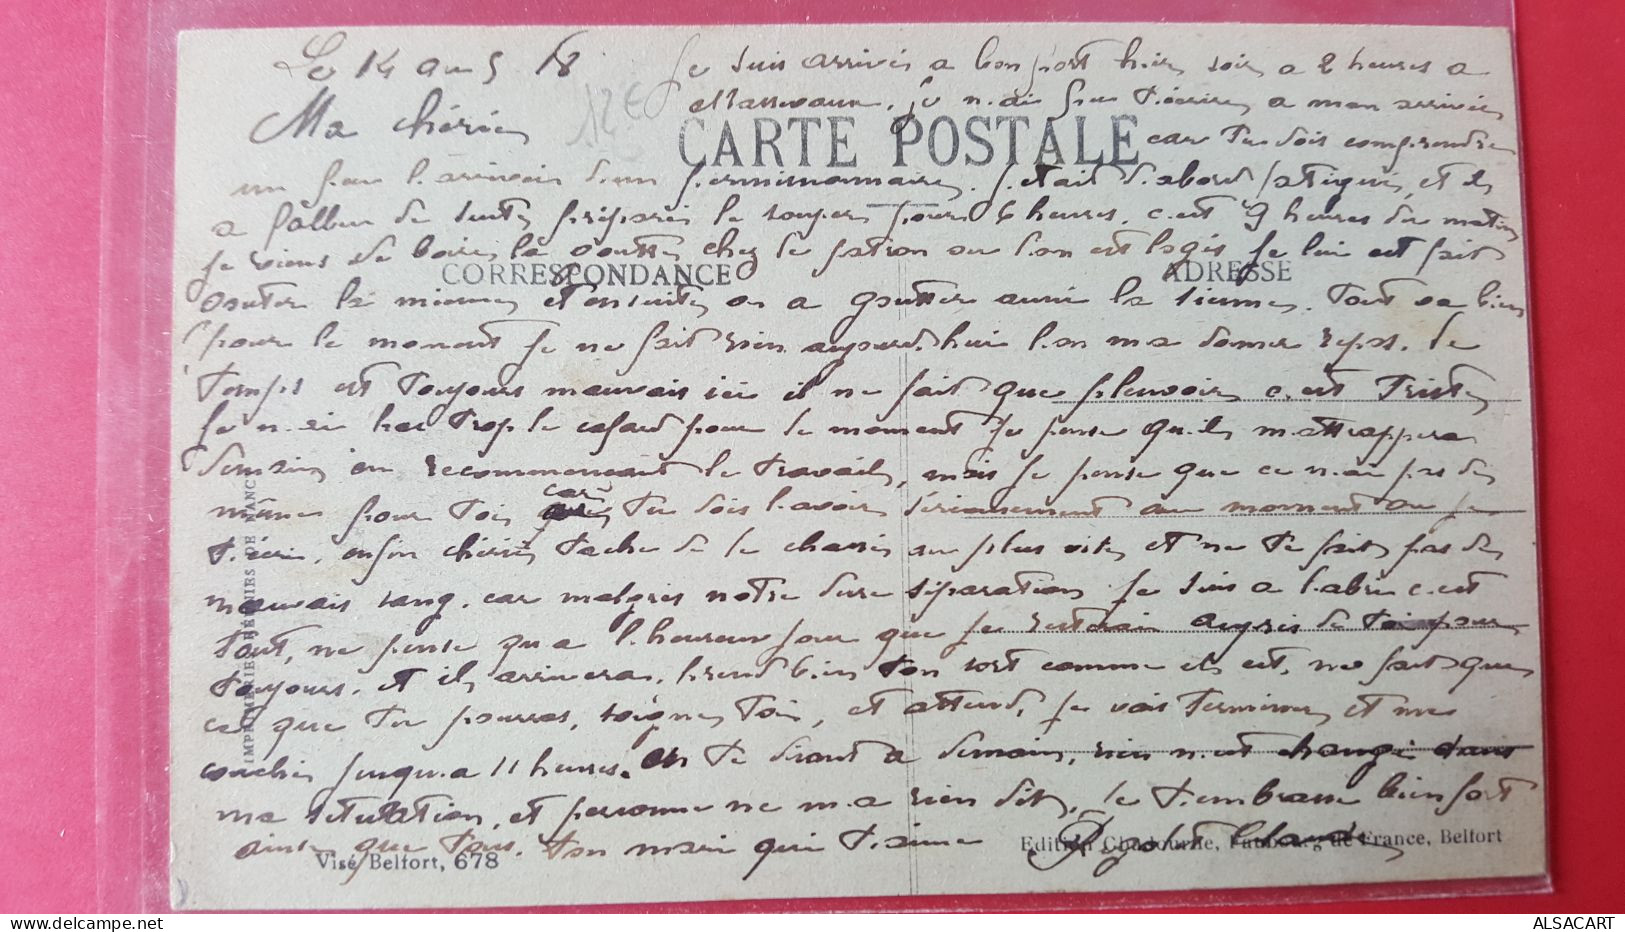 Le 14 5 18 Je suis arrivée a bon port hier soir a 2 heures a
Ma chérie 12€ Massevaux. Je n.ai pu t.écrire a mon arrivée
CARTE POSTALE car tu dois comprendre
un peu l.arrivée d.un permissionnaire. j.etait d.abord fatigué, et il
a fallu de suite préparé le souper pour 6 heures. c.est 9 heures du matin
je viens de boire la goutte chez le patron ou l.on est logis je lui est fait
CORRESPONDANCE ADRESSE
gouter la mienne et ensuite on a goutter aussi la sienne. Tout va bien
pour le moment je ne fait rien aujourd.hui l.on m.a donner repos. Le
temps est toujours mauvais ici il ne fait que pleuvoir c.est triste
je n.ai pas trop le cafard pour le moment je pense qu.il m.attrappera
demain en recommencant le travail, mais je pense que ce n.ai pas de
même pour toi car tu dois l.avoir serieusement au moment ou je
t.écris. enfin chérie tache de le chassé au plus vite et ne te fait pas de
mauvais sang. car malgré notre dure séparation je suis a l.abri c.est
tout, ne pense qu.a l.heureux jour que je resterai auprès de toi pour
toujours. et il arrivera. prend bien ton sort comme il est, ne fait que
ce que tu pourras, soigne toi, et attend, je vais terminer et me
couché jusqu.a 11 heures. en te disant a demain, rien n.est changé dans
ma situation, et personne ne m.a rien dit, je t.embrasse bien fort
ainsi que tous. ton mari qui t.aime
Visé Belfort, 678
Edition Chadourne, Faubourg de France, Belfort
IMPRIMERIES RÉUNIES DE NANCY
ALSACART